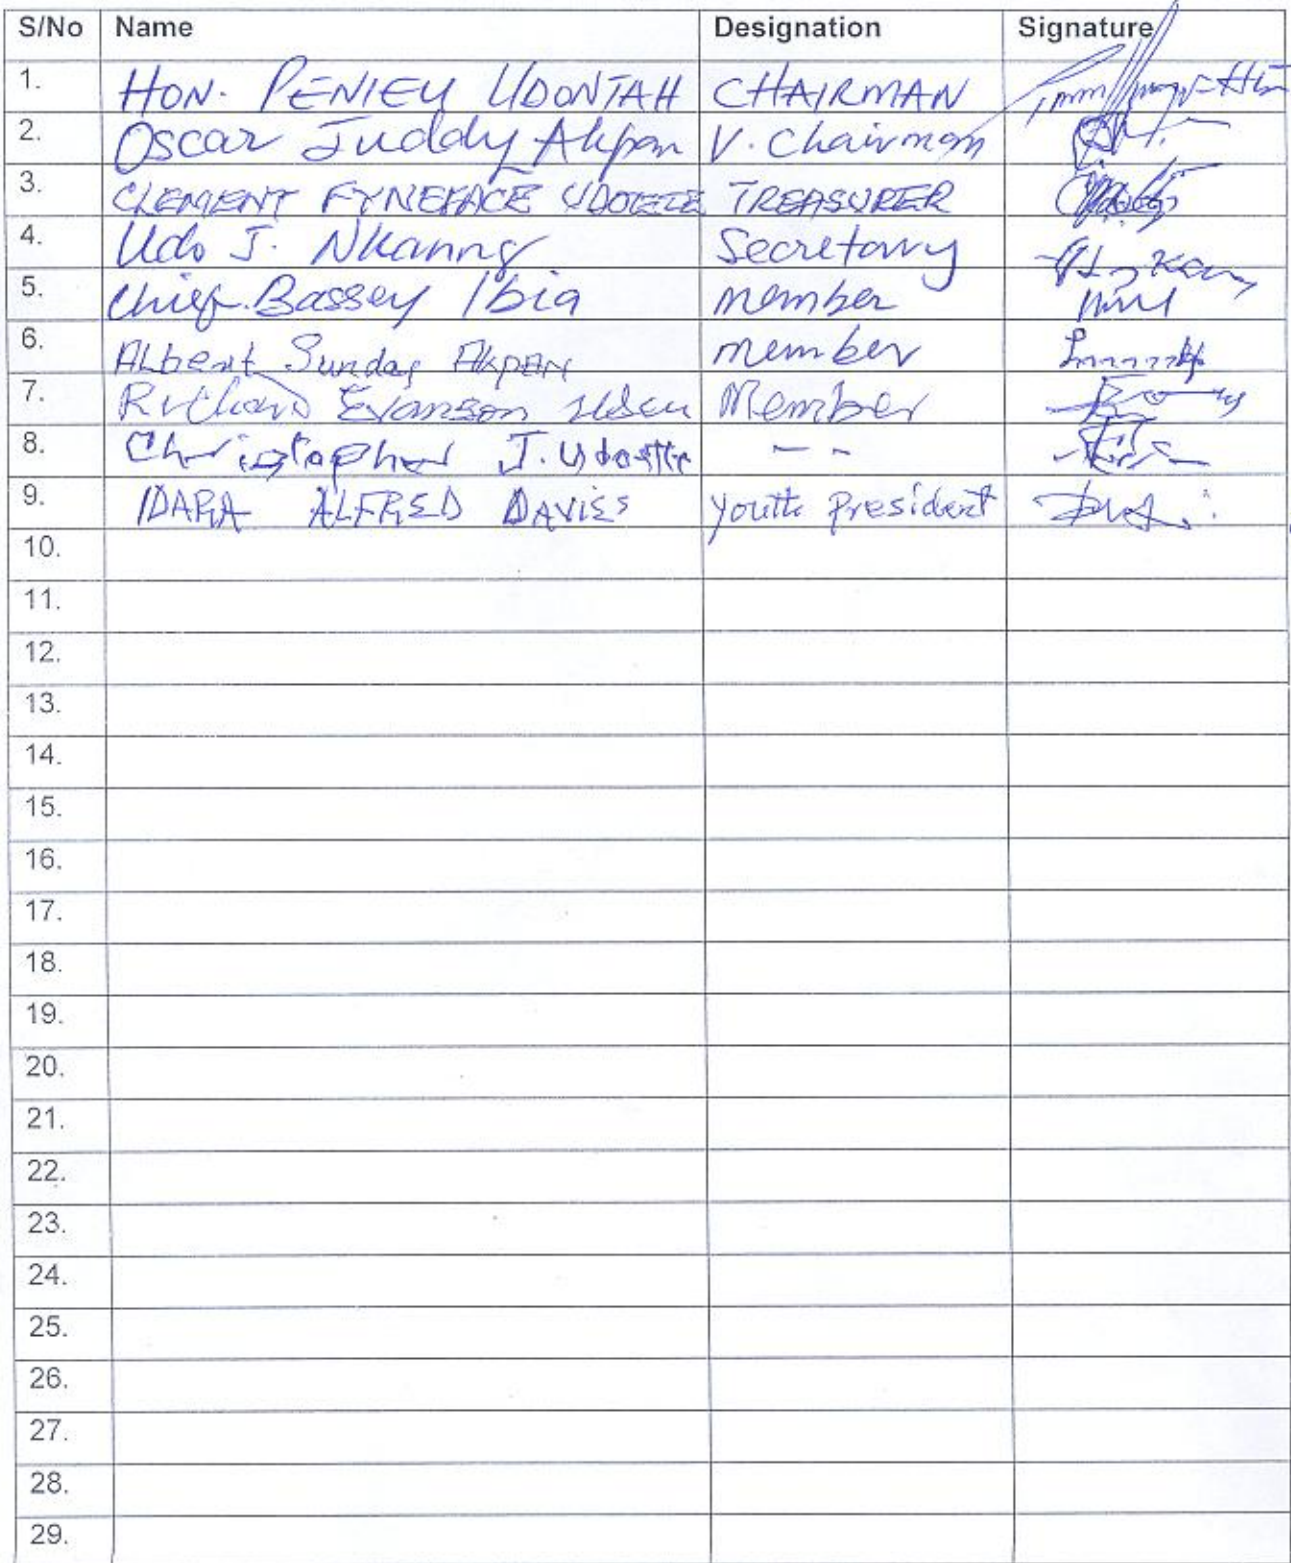 S/No Name Designation Signature
1. HON. PENIEY UDONTAH CHAIRMAN
2. Oscar Juddy Akpan V. Chairman
3. CLEMENT FYNEFACE TREASURER
4. Udo J. Nkanng Secretary
5. Chief. Bassey Ibia member
6. Albert Sunday AKPAN member
7. Richard Evanson Member
8. Christopher J. - -
9. IDARA ALFRED DAVIES youth President
10.
11.
12.
13.
14.
15.
16.
17.
18.
19.
20.
21.
22.
23.
24.
25.
26.
27.
28.
29.